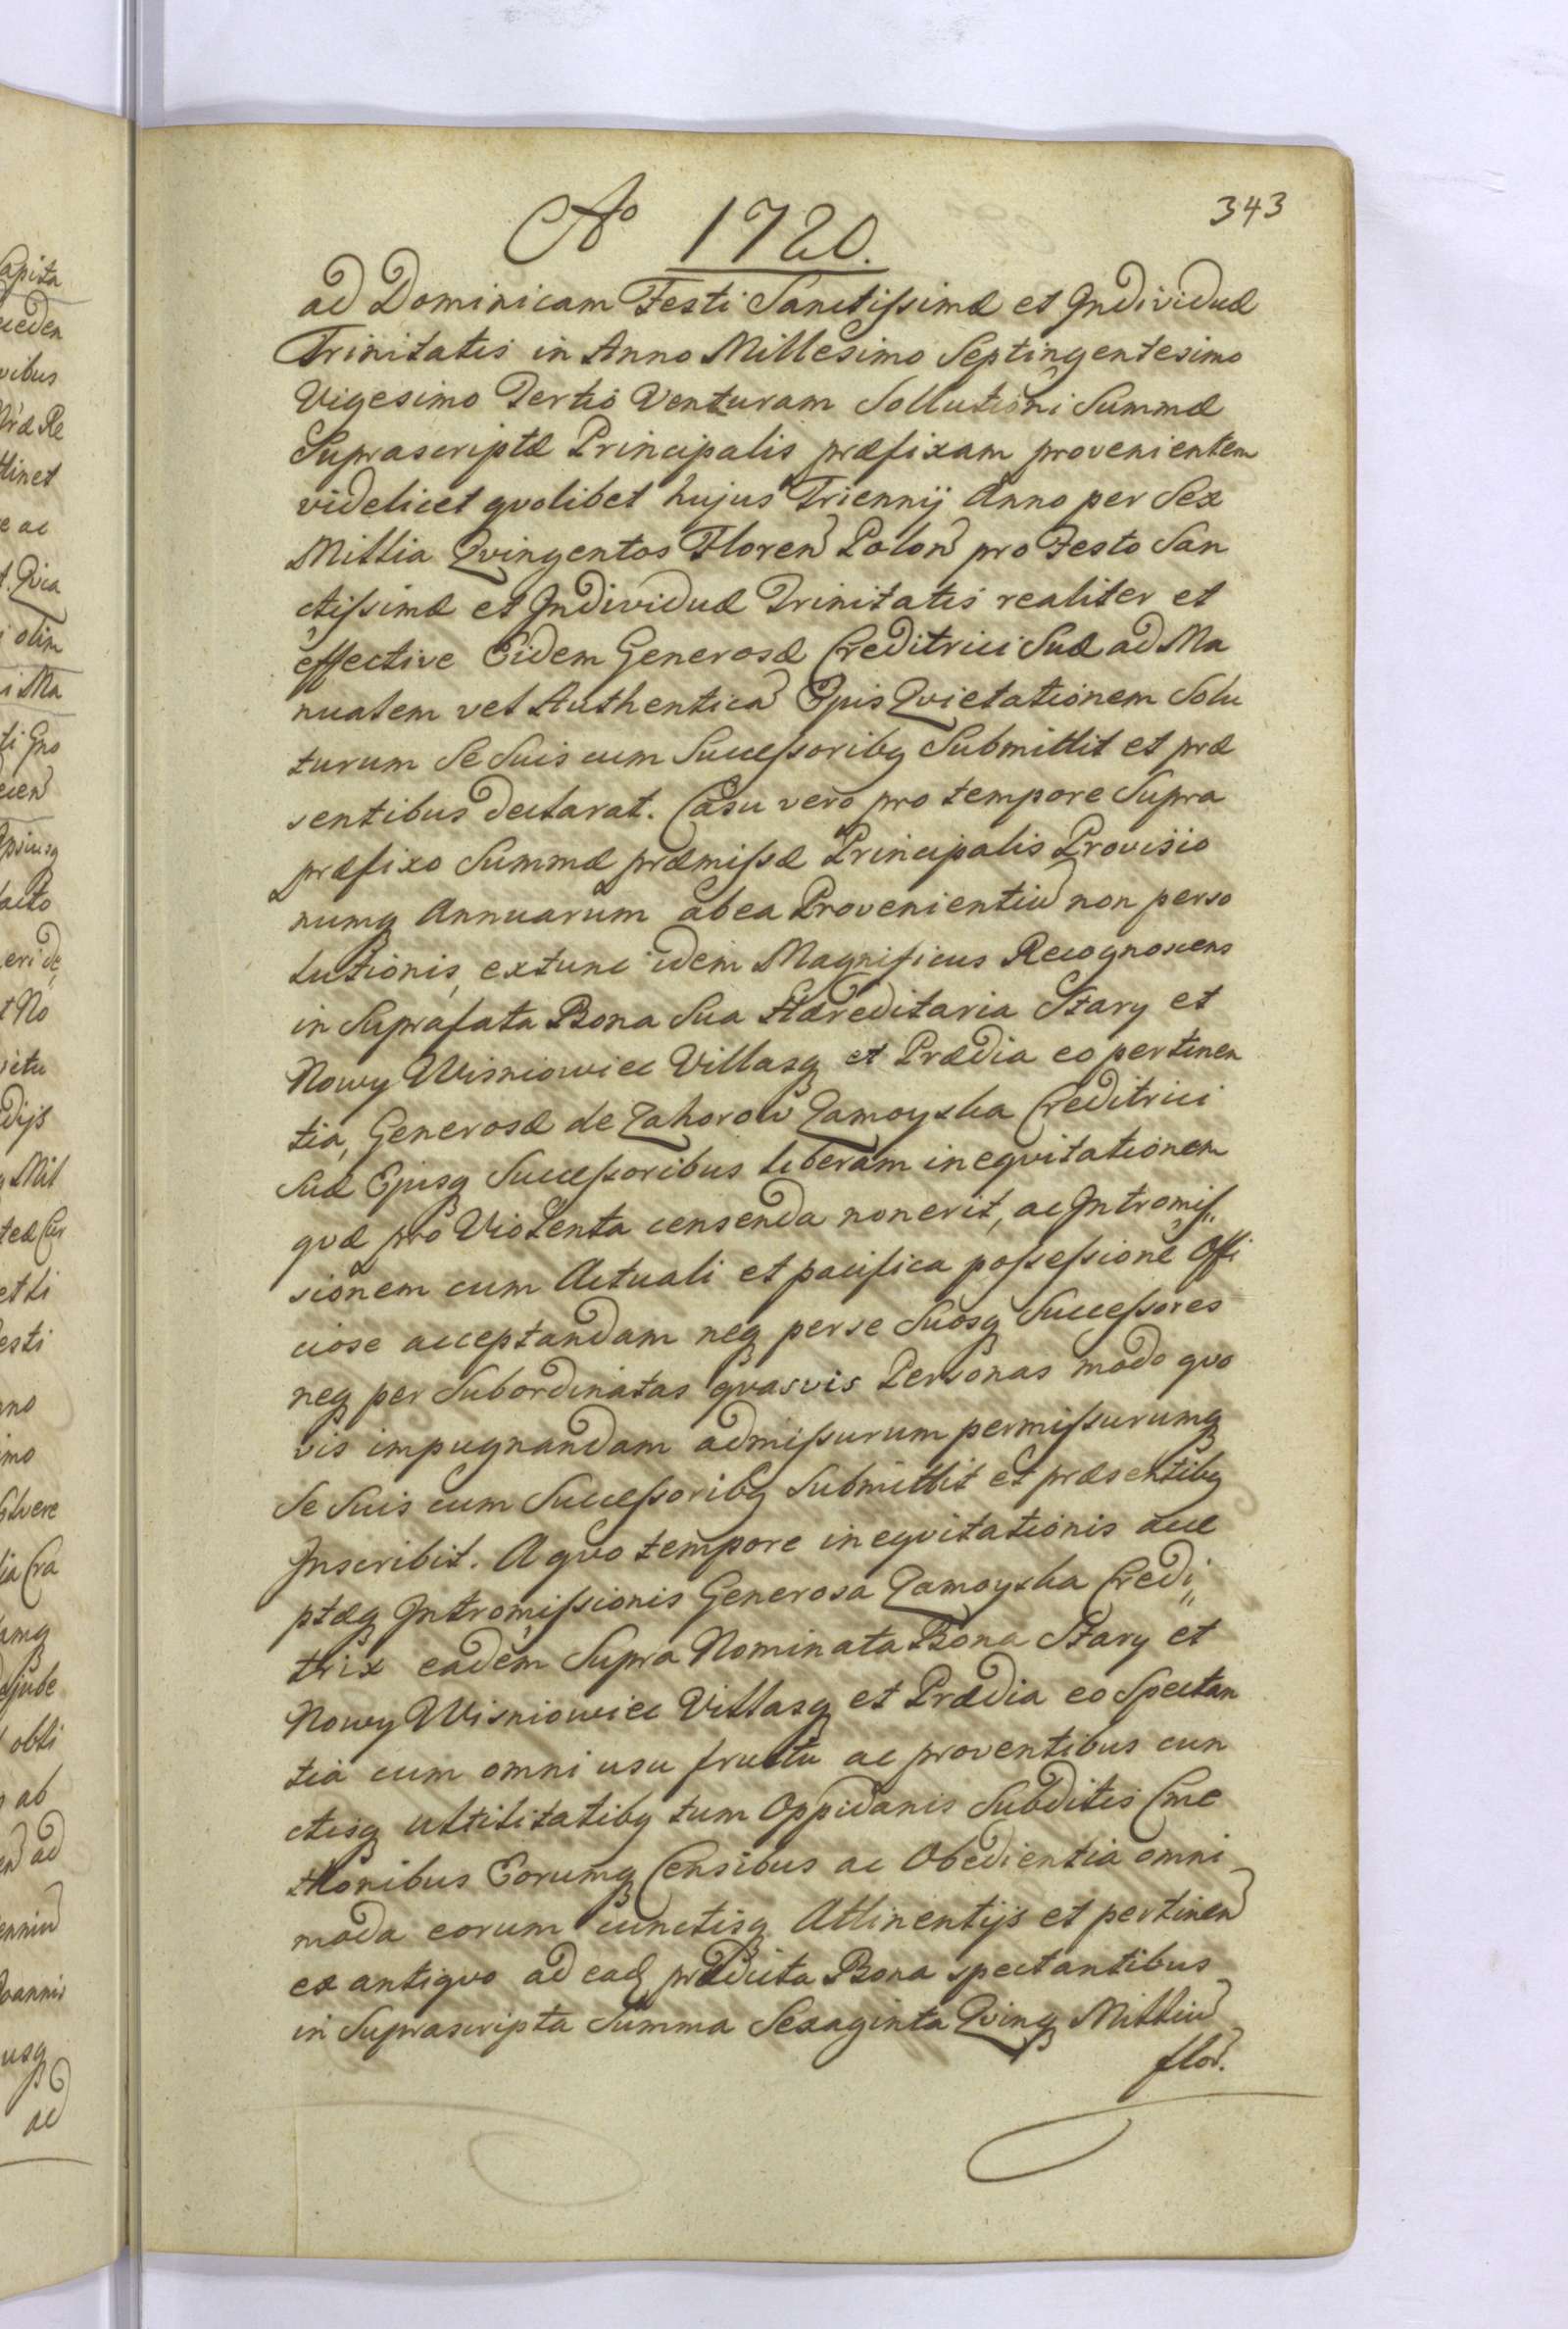 343
Ao 1720.
ad Dominicam Festi Sanctissimæ et Individuæ
Trinitatis in Anno Millesimo Septingentesimo
Vigesimo Tertio Venturam Sollutioni Summæ
Suprascriptæ Principalis præfixam provenientem
videlicet qvolibet hujus Triennij Anno per Sex
Millia Qvingentos Floren Polon pro Festo San
ctissimæ et Individuæ Trinitatis realiter et
effective Eidem Generosæ Creditrici Suæ ad Ma
nualem vel Authentica Ejus Qvietationem Solu
turum Se Suis cum Successoribq Submittit et præ
sentibus declarat. Casu vero pro tempore Supra
præfixo Summæ præmissæ Principalis Provisio
numq Annuarum ab ea Provenientiu non perso
lutionis, extunc idem Magnificus Recognoscens
in Suprafata Bona Sua Hæreditaria Stary et
Nowy Wisniowiec Villasq et Prædia eo pertinen
tia, Generosæ de Zahorow Zamoyska Creditrici
Suæ Ejusq Successoribus liberam ineqvitationem
qvæ pro Violenta censenda non erit, ac Intromis„
sionem cum Actuali et pacifica possessione Offi
ciose acceptandam neq per se Suosq Successores
neq per Subordinatas qvasvis Personas modo qvo
vis impugnandam admissurum permissurumq
Se Suis cum Successoribq Submittit et præsentibq
Inscribit. A qvo tempore ineqvitationis acce
ptæq Intromissionis Generosa Zamoyska Credi„
trix eadem Supra Nominata Bona Stary et
Nowy Wisniowiec Villasq et Prædia eo Spectan
tia cum omni usu fructu ac proventibus cun
ctisq Utilitatibq tum Oppidanis Subditis Cme
thonibus Eorumq Censibus ac Obedientia omni
moda eorum cunctisq Attinentijs et pertinen
ex antiqvo ad ead prædicta Bona spectantibus
in Suprascripta Summa Sexaginta Qvinq Milliu
flor.